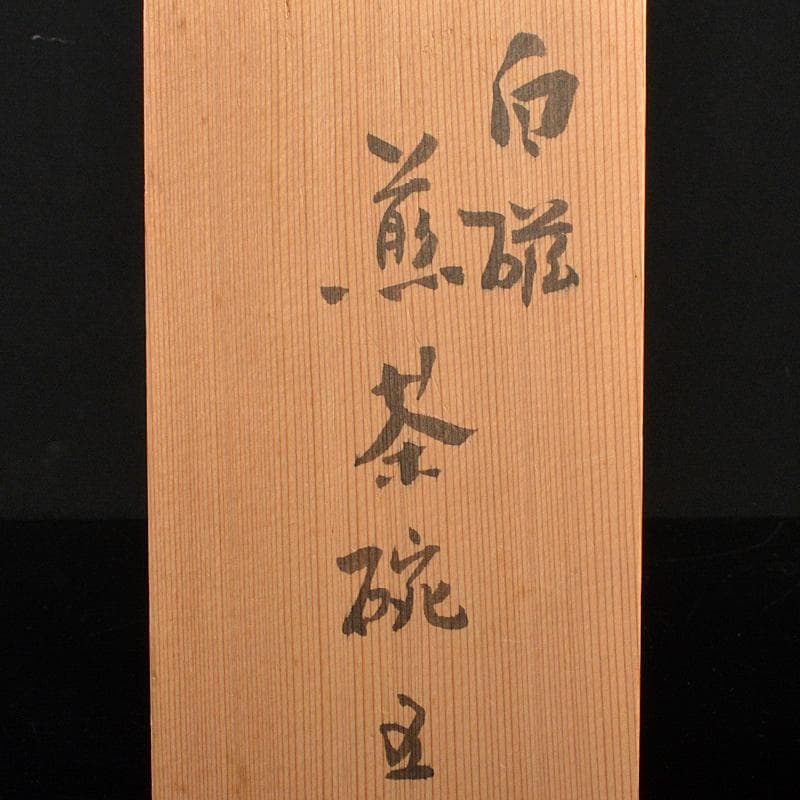 白磁
煎茶碗五